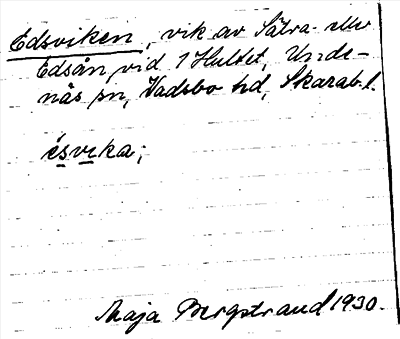 Edsviken, vik av Sätra- eller
Edsån vid 1 Hultet, Unde-
näs sn, Vadsbo hd, Skarab. l.
ésvika;
Maja Bergstrand 1930.